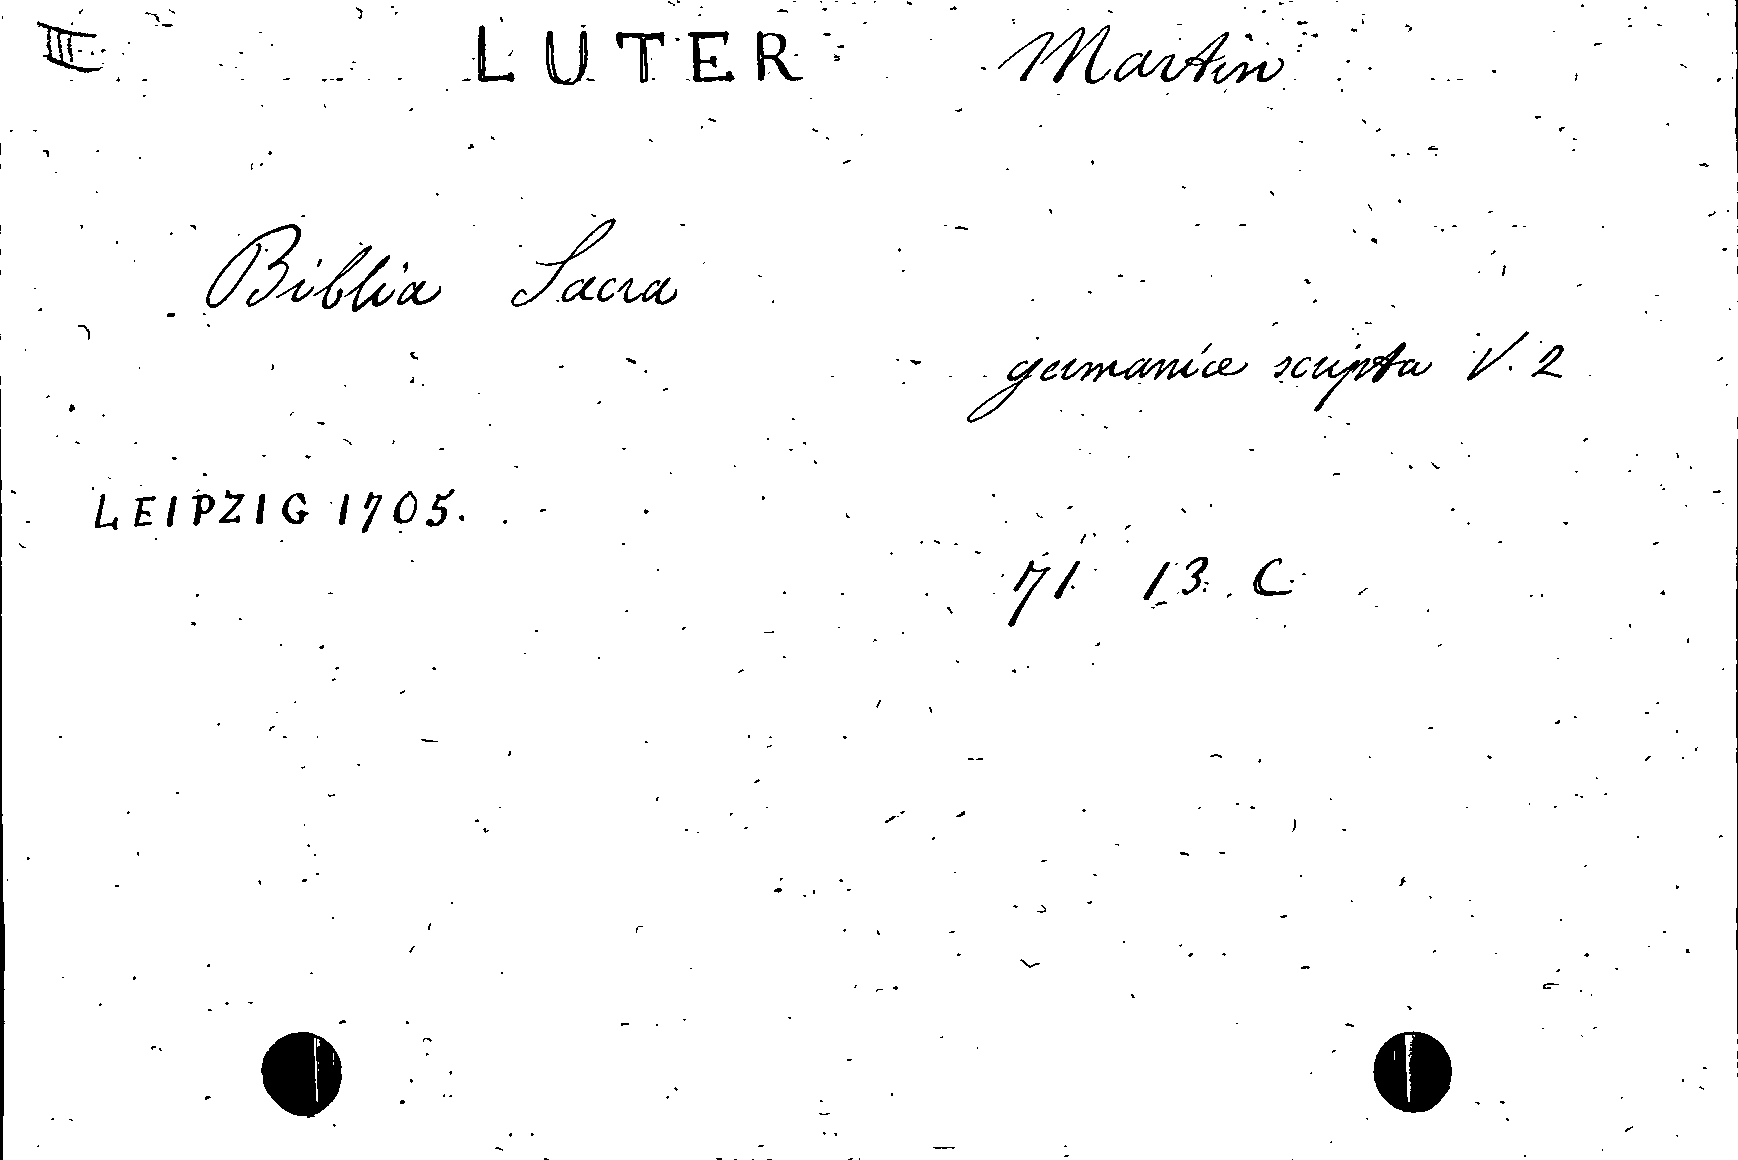 III LUTER Martin
Biblia Sacra
germanice scripta V. 2
LEIPZIG 1705.
71 13. C